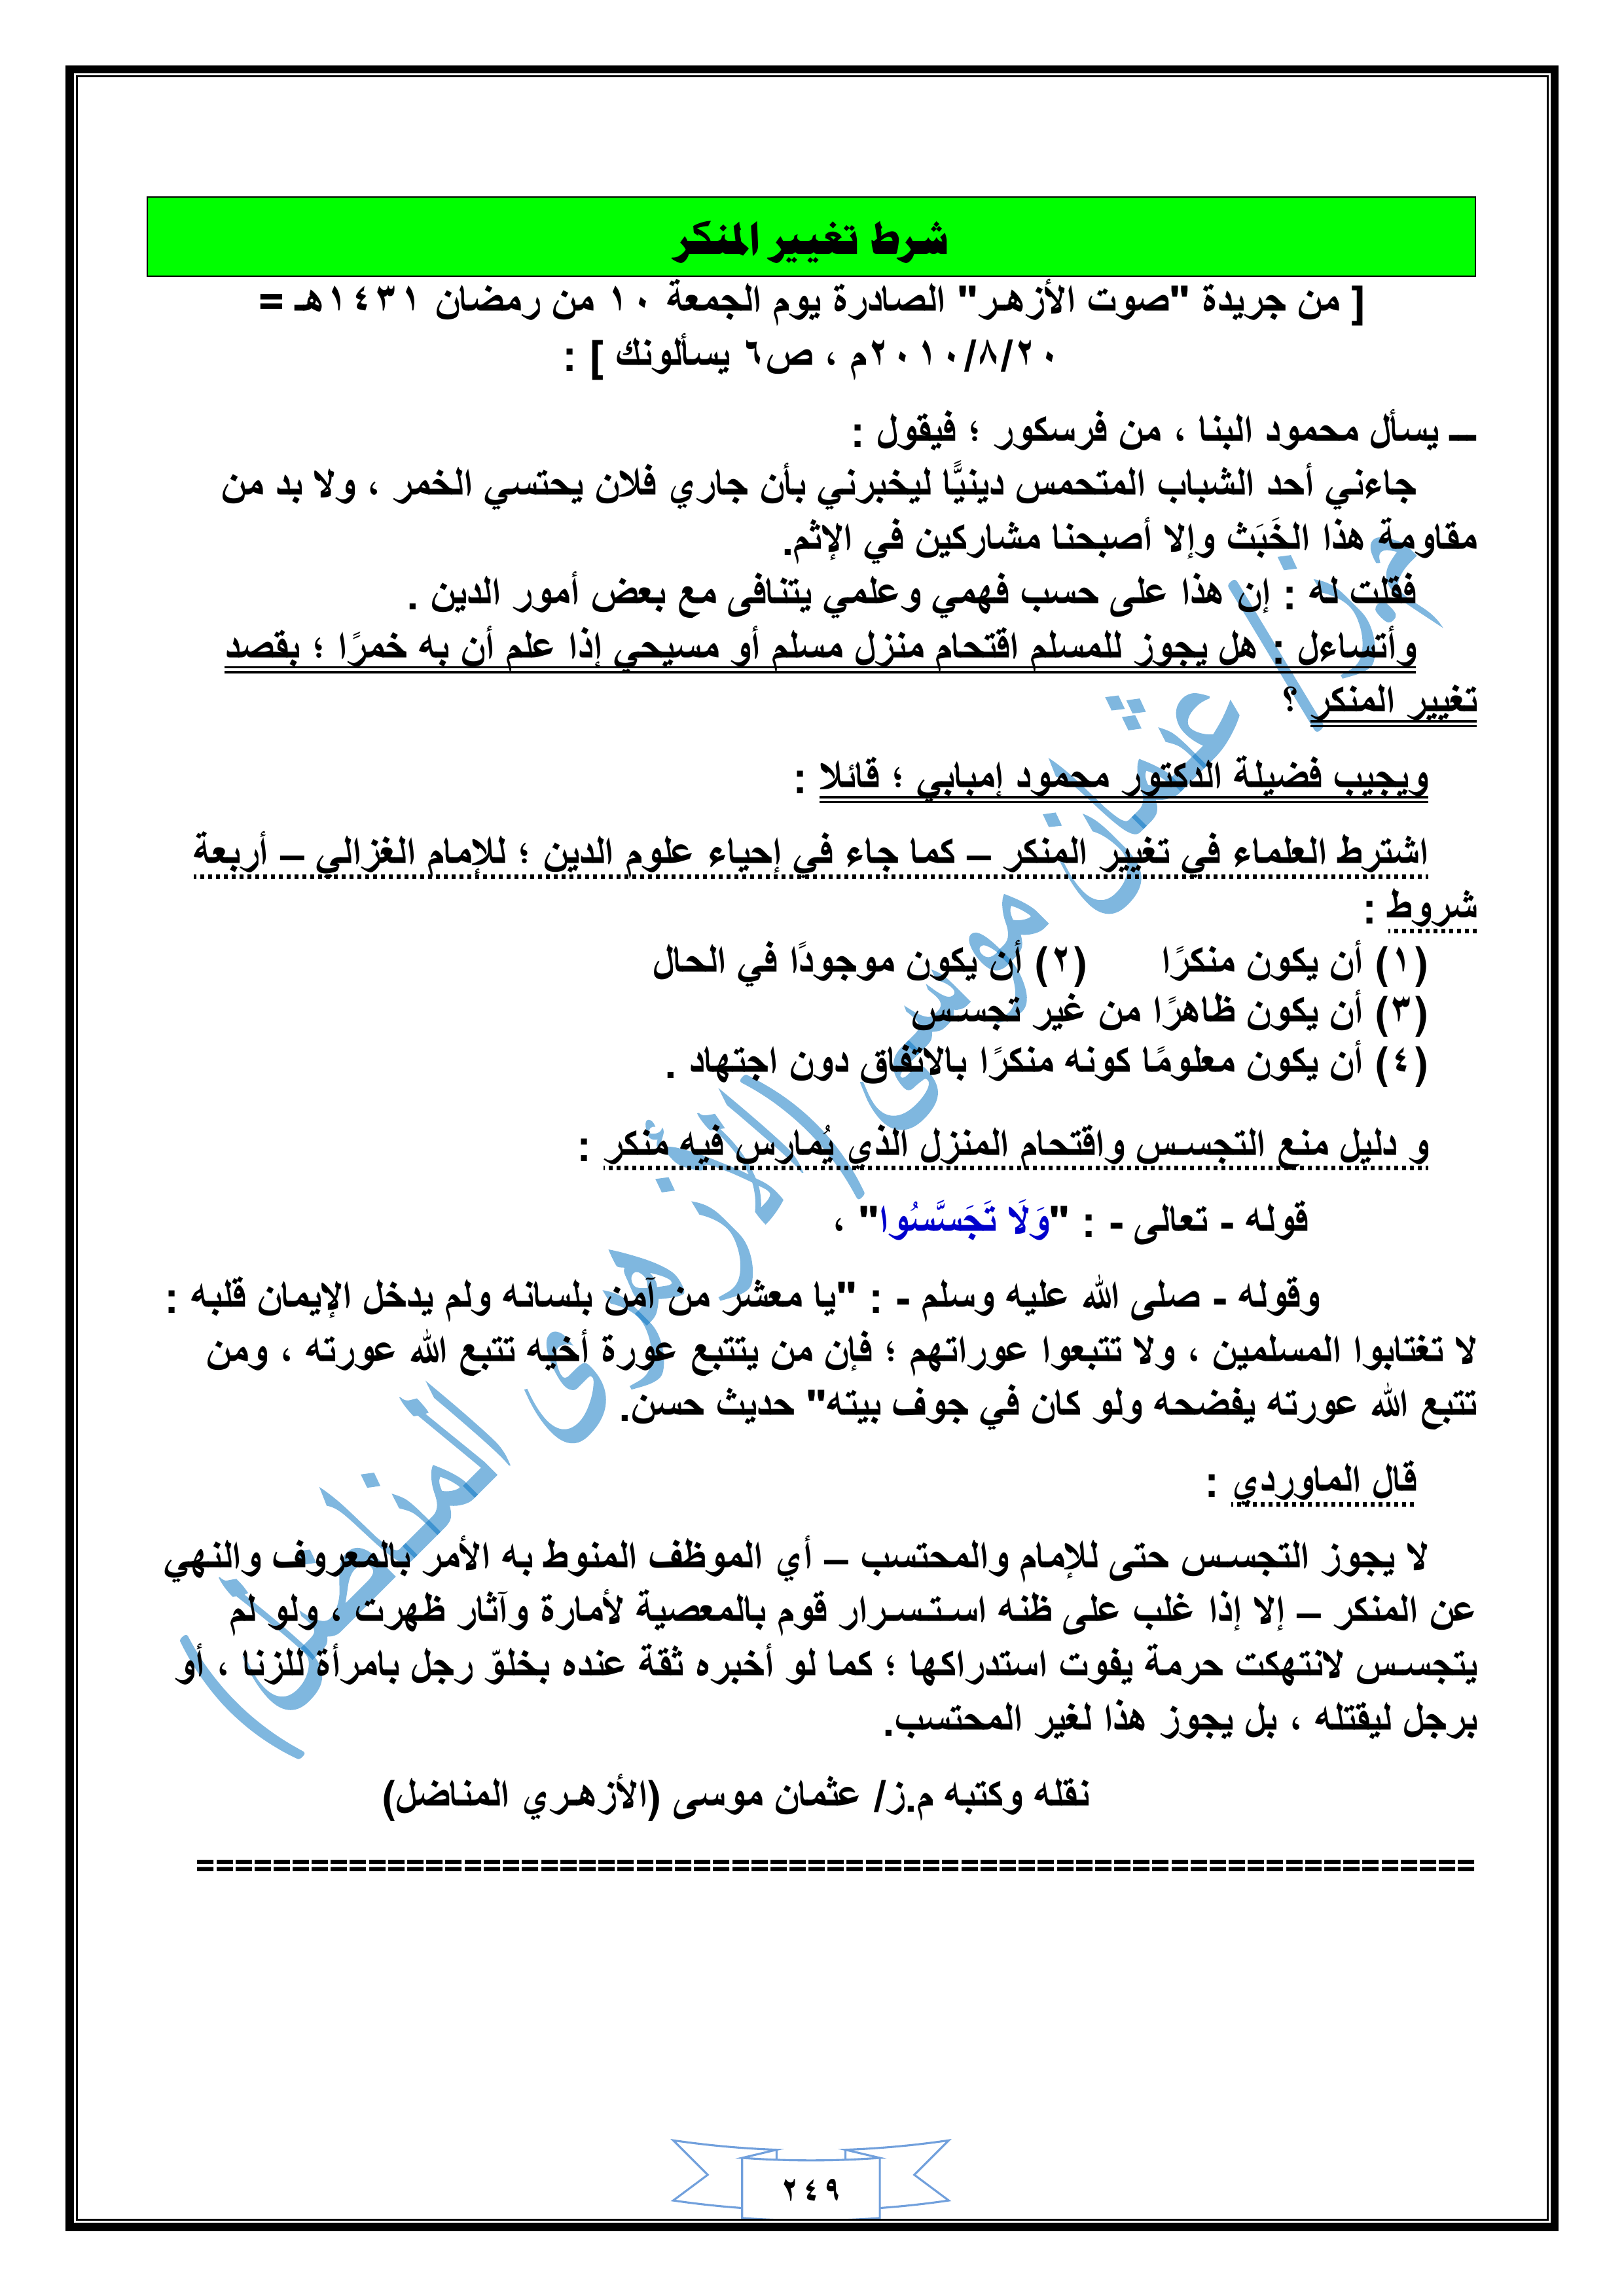 شرط تغيير المنكر
[ من جريدة "صوت الأزهـر" الصادرة يوم الجمعة ١٠ من رمضان ١٤٣١هـ =
٢٠١٠/٨/٢٠م ، ص٦ يسألونك ] :
ـــ يسأل محمود البنا ، من فرسكور ؛ فيقول :
جاءني أحد الشباب المتحمس دينيًّا ليخبرني بأن جاري فلان يحتسي الخمر ، ولا بد من
مقاومة هذا الخَبَث وإلا أصبحنا مشاركين في الإثم.
فقلت له : إن هذا على حسب فهمي وعلمي يتنافى مع بعض أمور الدين .
وأتساءل : هل يجوز للمسلم اقتحام منزل مسلم أو مسيحي إذا علم أن به خمرًا ؛ بقصد
تغيير المنكر ؟
ويجيب فضيلة الدكتور محمود إمبابي ؛ قائلا :
اشترط العلماء في تغيير المنكر – كما جاء في إحياء علوم الدين ؛ للإمام الغزالي – أربعة
شروط :
(١) أن يكون منكرًا (٢) أن يكون موجودًا في الحال
(٣) أن يكون ظاهرًا من غير تجسـس
(٤) أن يكون معلومًا كونه منكرًا بالاتفاق دون اجتهاد .
و دليل منع التجسـس واقتحام المنزل الذي يُمارس فيه منكر :
قوله - تعالى - : "وَلَا تَجَسَّسُوا" ،
وقوله - صلى الله عليه وسلم - : "يا معشر من آمن بلسانه ولم يدخل الإيمان قلبه :
لا تغتابوا المسلمين ، ولا تتبعوا عوراتهم ؛ فإن من يتتبع عورة أخيه تتبع الله عورته ، ومن
تتبع الله عورته يفضحه ولو كان في جوف بيته" حديث حسن.
قال الماوردي :
لا يجوز التجسـس حتى للإمام والمحتسب – أي الموظف المنوط به الأمر بالمعروف والنهي
عن المنكر – إلا إذا غلب على ظنه اسـتـسـرار قوم بالمعصية لأمارة وآثار ظهرت ، ولو لم
يتجسـس لانتهكت حرمة يفوت استدراكها ؛ كما لو أخبره ثقة عنده بخلوّ رجل بامرأة للزنا ، أو
برجل ليقتله ، بل يجوز هذا لغير المحتسب.
نقله وكتبه م.ز/ عثمان موسى (الأزهـري المناضل)
====================================================================
م.ز/ عثمان موسى (الأزهرى المناضل)
٢٤٩